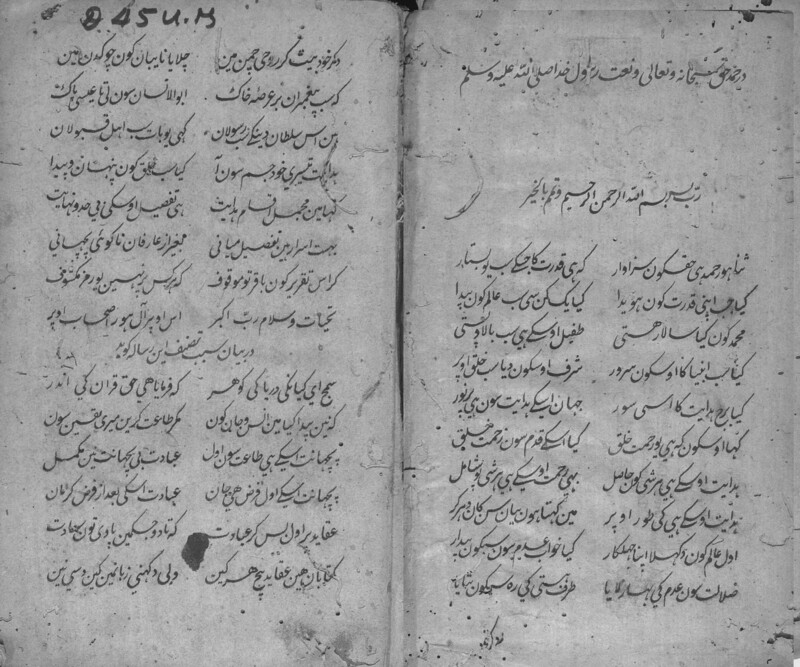 در حمد حق سبحانه و تعالی و نعت رسول خدا صلی الله علیه وسلم
رب بسم الله الرحمن الرحیم و تمم بالخیر
ثنا هور حمد هی حق کون سزاوار که هی قدرت کا جسکے سب یو بستار
کیا جب اپنی قدرت کون هویدا کیا یک کن سی سب عالم کون پیدا
محمد کون کیا سالار هستی طفیل اوسکے هی سب بالا و پستی
کیا سب انبیا کا اوسکون سرور شرف اوسکون دیا سب خلق اوپر
کیا بزم هدایت کا اسی سور جهان اسکے هدایت سون هی پرنور
کہا اوسکون که هی یو رحمت خلق کیا اسکے قدم سون زحمت خلق
هدایت اوسکے هی هر شی کون حاصل یهی رحمت اوسکے هی هر شی پو شامل
هدایت اوسکے هی کی طور اوپر مین کهتا هون بیان سن کان دهر کر
اول عالم کون دکهلا اپنا جهلکار کیا خواب عدم سون سب کون بیدار
ضلالت سون عدم کی بهار لیایا طرف هستی کی ره سب کون بتایا
D 45 U.M
دگر خود بیٹ کر روحی چمن مین چلایا نایبان کون چو کدهن مین
که سب پیغمبران بر عرصهٔ خاک ابو الانسان سون تا عیسی پاک
هین اس سلطان دینکے سب رسولان کهی یو بات سب اهل قبولان
هدایت تیسری خود جسم سون آ کیا سب خلق کون پنهان و پیدا
کها مین مجمل اقسام هدایت هی تفصیل اوسکی بی حد و نهایت
بهت اسرار هین تفصیل میانی بغیر از عارفان نا کوئی پچهانی
کر اس تقریر کون باقر تو موقوف که هر کس پر نهین یو رمز مکشوف
تحیات و سلام رب اکبر اس اوپر آل هور اصحاب اوپر
در بیان سبب تصنیف این رساله گوید
سمج ای کیانکی دریا کی گوهر که فرمایا هی حق قران کی اندر
که نین پیدا کیا مین انس و جان کون مگر طاعت کرین میری یقین سون
پچهانت اسکے هی طاعت سون اول عبادت بی پچهانت نین مکمل
پچهانت اسکے اول فرض هی جان عبادت اسکی بعد از فرض کر مان
عقاید پر اول اس کر عبادت که تا دو جگ مین پاوی تون سعادت
کتابان هین عقاید بیچ هر کین ولی دکهنی زبان مین کین دسی نین